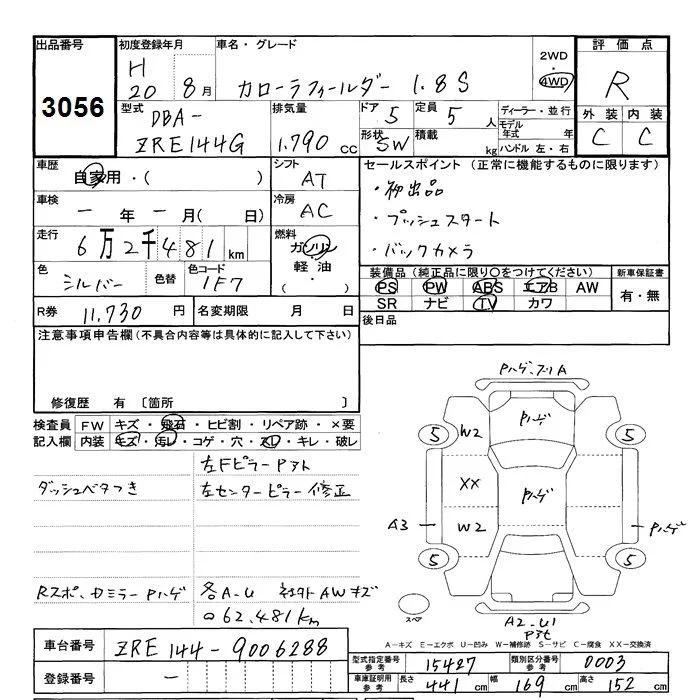 出品番号 初度登録年月 車名・グレード 評価点
3056
H 20 8月 カローラフィールダー 1.8S 2WD 4WD R
型式 DBA-ZRE144G 排気量 1.790cc ドア 5 定員 5人 ディーラー・並行
形状 SW 積載 kg モデル年式 年 ハンドル 左・右
外装 内装
C C
車歴 自家用・( ) シフト AT
車検 一年一月( 日) 冷房 AC
走行 6万2千481km 燃料 ガソリン・軽油・( )
色 シルバー 色替 色コード 1F7
R券 11.730円 名変期限 月 日
セールスポイント (正常に機能するものに限ります)
・初出品
・プッシュスタート
・バックカメラ
装備品 (純正品に限り○をつけてください) 新車保証書
PS PW ABS エアB AW 有・無
SR ナビ TV カワ
後日品
注意事項申告欄 (不具合内容等は具体的に記入して下さい)
修復歴 有 〔箇所 〕
検査員記入欄 FW キズ・飛石・ヒビ割・リペア跡・×要
内装 キズ・汚レ・コゲ・穴・スレ・キレ・破レ
左Fピラー Pアト
ダッシュベタつき 左センターピラー修正
Rスポ、ドミラー Pハゲ 各A-U AWキズ
62.481km
Pハゲ、フリA
Pハゲ
5 W2 5
XX Pハゲ
A3 W2 Pハゲ
5 5
スペア
A2-U1
Pアト
A-キズ E-エクボ U-凹み W-補修跡 S-サビ C-腐食 XX-交換済
車台番号 ZRE144-9006288
登録番号 -
型式指定番号 参考 15427 類別区分番号 参考 0003
車庫証明用 参考 長さ 441cm 幅 169cm 高さ 152cm